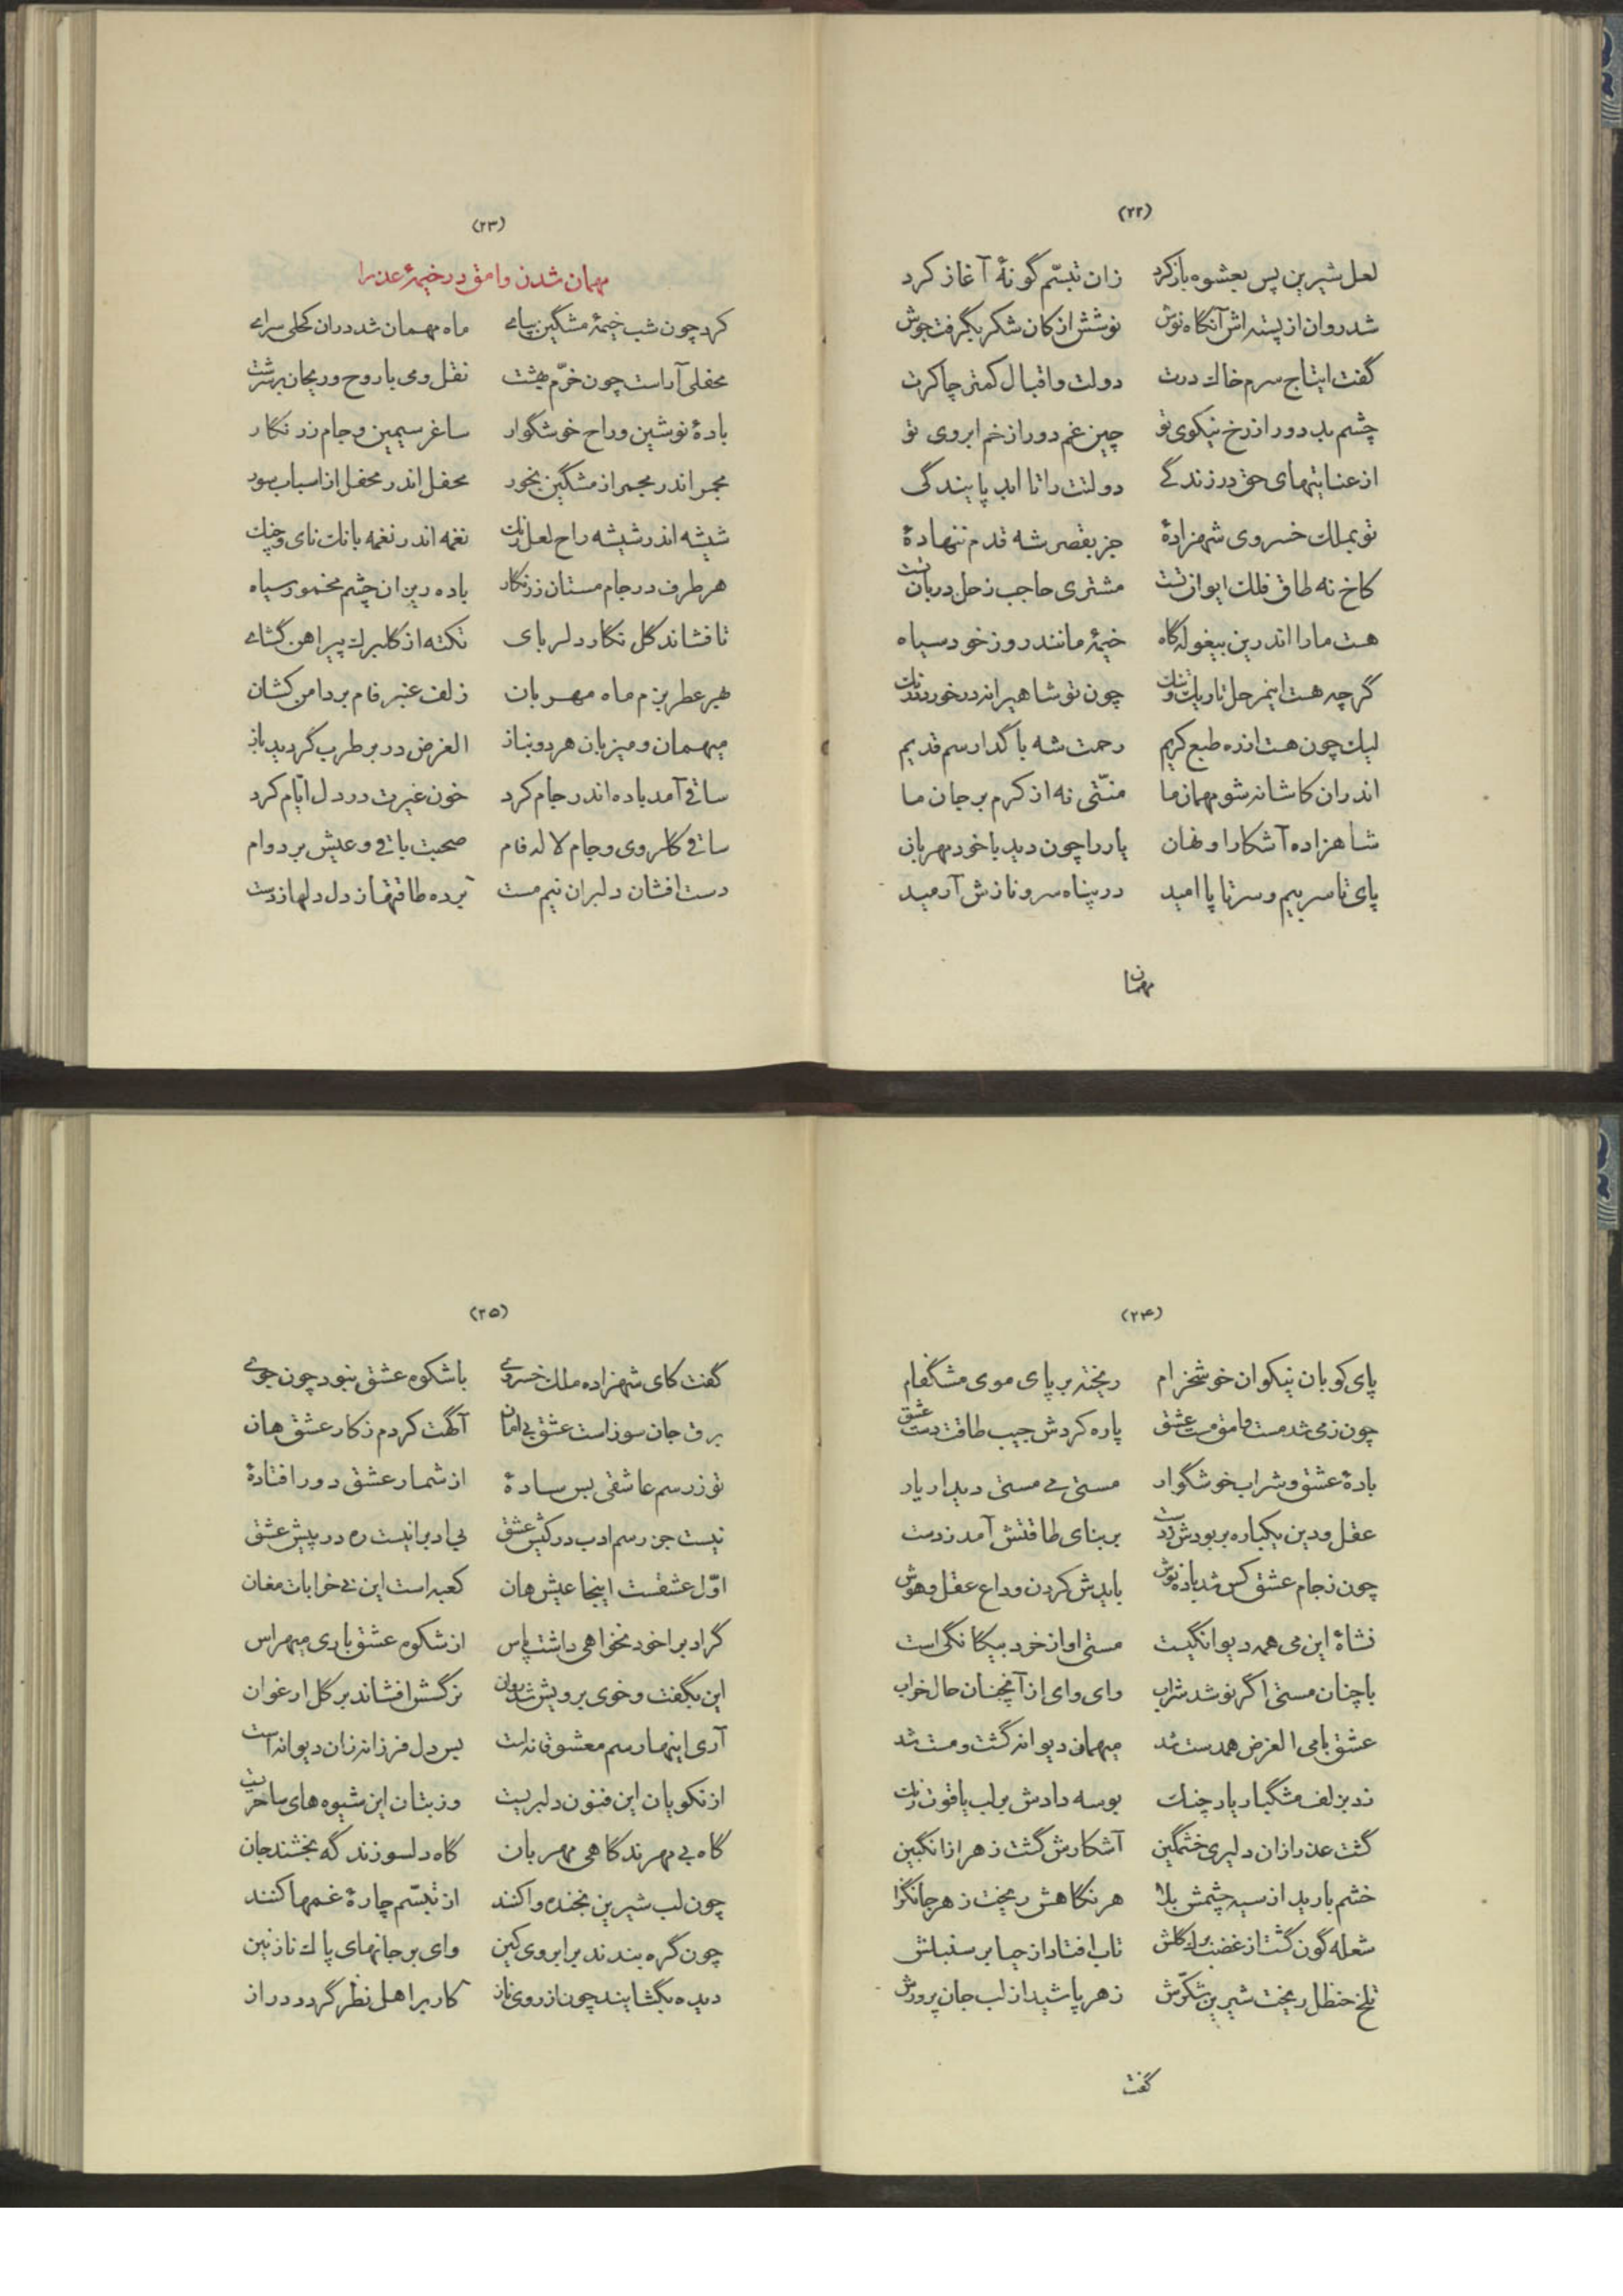 (۲۲)
لعل شیرین پس بعشوه بازکرد زان تبسّم گونهٔ آغاز کرد
شد روان از پسته اش آنگاه نوش نوشش از کان شکر بگرفت جوش
گفت ایتاج سرم خاك درت دولت و اقبال کمتر چاکرت
چشم بد دور از رخ نیکوی تو چین غم دور از خم ابروی تو
از عنایتهای حق در زندگے دولتت را تا ابد پایندگی
تو بملك خسروی شهزادهٔ جز بقصر شه قدم ننهادهٔ
کاخ نه طاق فلك ایوان تست مشتری حاجب زحل دربان تست
هست ما را اندرین بیغوله گاه خیمهٔ مانند روز خود سیاه
گرچه هست اینمرحل تاریك و تنك چون تو شاهیرا نه درخورد
لیك چون هست از ده طبع کریم رحمت شه با گدا رسم قدیم
اندران کاشانه شو مهمان ما منّتی نه از کرم بر جان ما
شاهزاده آشکارا و نهان یار را چون دید با خود مهربان
پای تا سر بیم و سر تا پا امید در پناه سرو نازش آرمید
مهمان
(۲۳)
مهمان شدن وامق در خیمهٔ عذرا
کرد چون شب خیمهٔ مشگین بپاے ماه مهمان شد دران کحلی سراے
محفلی آراست چون خرّم بهشت نقل و می با روح و ریحان برسرشت
بادهٔ نوشین و راح خوشگوار ساغر سیمین و جام زر نگار
مجمر اندر مجمر از مشگین بخور محفل اندر محفل از اسباب سور
شیشه اندر شیشه راح لعل رنك نغمه اندر نغمه بانك نای و چنك
هر طرف در جام مستان ز زنگار باده ریز ان چشم مخمور سیاه
تا فشاند گل نگار دلربای تکته از گلبرك پیراهن گشاے
بهر عطر بزم ماه مهربان زلف عنبر فام بر دامن کشان
میهمان و میزبان هر دو بناز الغرض در بر طرب گردید باز
ساقی آمد باده اندر جام کرد خون غیرت در دل ایّام کرد
ساقی گلروی و جام لاله فام صحبت باقی و عیش بر دوام
دست افشان دلبران نیم مست برده طاقتها ز دل دلها ز دست
(۲۴)
پای کوبان نیکوان خوشخرام ریخته بر پای موی مشگفام
چون زمی شد مست وامق مست عشق پاره کردش جیب طاقت دست عشق
بادهٔ عشق و شراب خوشگوار مستی می مستی دیدار یار
عقل و دین یکباره بربودش ز دست بر بنای طاقتش آمد ز دست
چون ز جام عشق کس شد باده نوش بایدش کردن وداع عقل و هوش
نشاهٔ این می همه دیوانگیست مستی او از خرد بیگانگی است
با چنان مستی اگر نوشد شراب وای وای از آنچنان حال خراب
عشق با می الغرض همدست شد میهمان دیوانه گشت و مست شد
زد بزلف مشگبار یار چنك بوسه دادش بر لب یاقوت رنك
گشت عذرا زان دلیری خشمگین آشکارش گشت زهر از انگبین
خشم بارید از سیه چشمش بلا هر نگاهش ریخت زهر جانگزا
شعله گون گشت از غضب برك گلش تاب افتاد از حیا بر سنبلش
تلخ حنظل ریخت شیرین شکّرش زهر پاشید از لب جان پرورش
گفت
(۲۵)
گفت کای شهزاده ملك خسروے با شکوه عشق نبود چون جوے
برق جان سوز است عشق بی امان آگهت کردم ز کار عشق هان
تو ز رسم عاشقی بس سادهٔ از شمار عشق دور افتادهٔ
نیست جز رسم ادب در کیش عشق بی ادبرا نیست ره در پیش عشق
اوّل عشقست اینجا عیش هان کعبه است این نی خرابات مغان
گر ادب را خود نخواهی داشت پاس از شکوه عشق باری میهراس
این بگفت و خوی برویش شد روان نرگسش افشاند بر گل ارغوان
آری اینها رسم معشوقانه است بس دل فرزانه زان دیوانه است
از نکویان این فنون دلبریست وز بتان این شیوه های ساحریست
گاه بی مهرند گاهی مهربان گاه دلسوزند گه بخشند جان
چون لب شیرین بخنده وا کنند از تبسّم چارهٔ غمها کنند
چون گره بندند بر ابروی کین وای بر جانهای پاك نازنین
دیده بگشایند چون از روی ناز کار بر اهل نظر گردد دراز